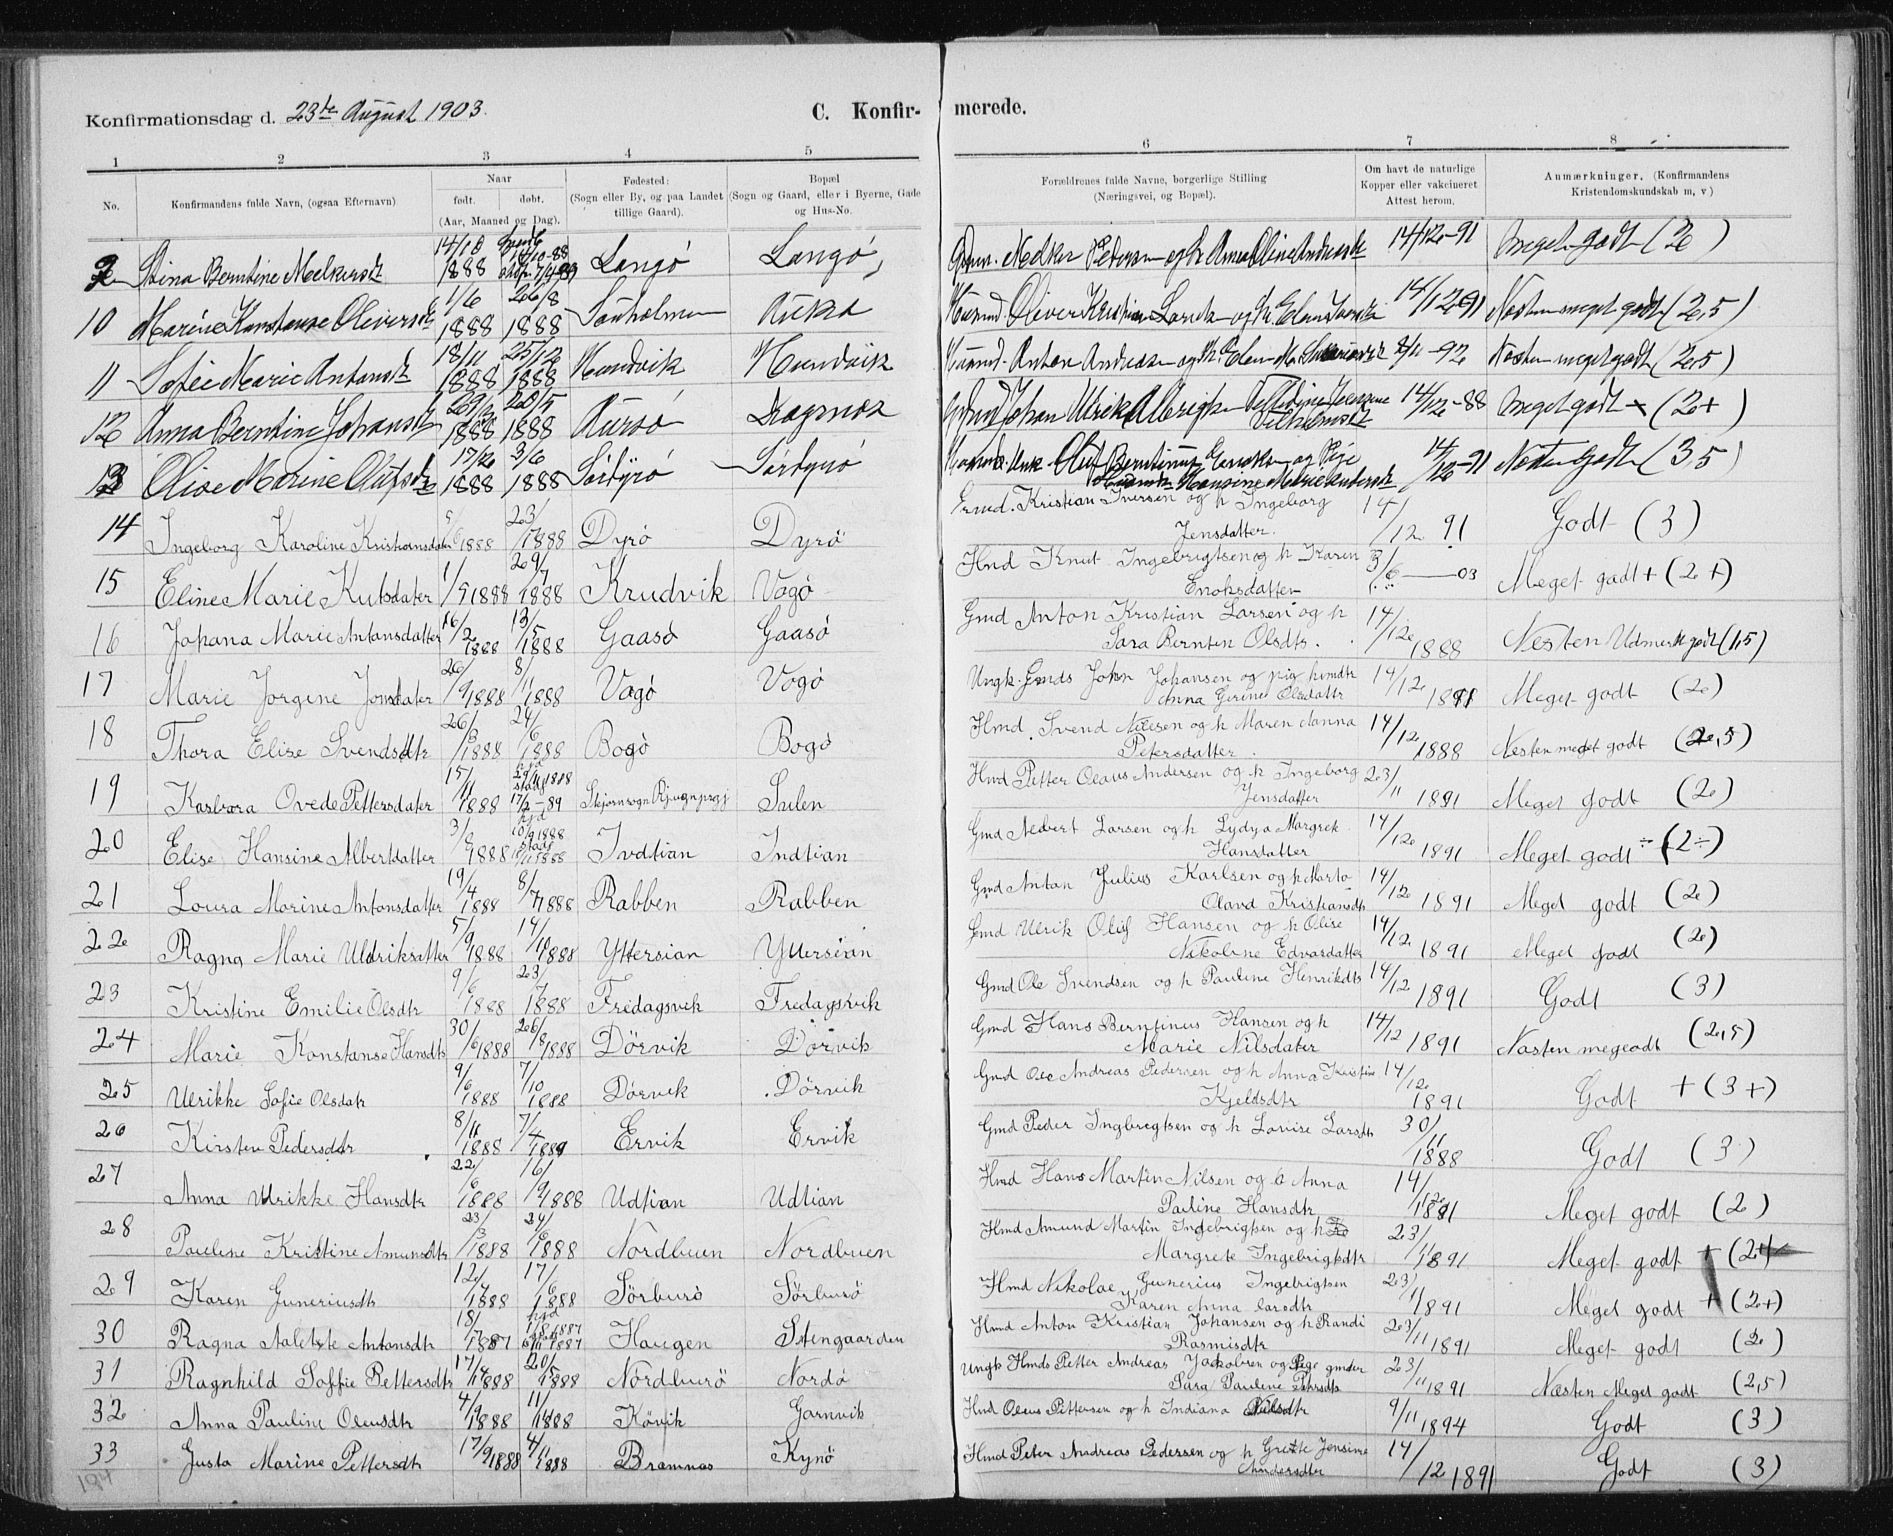 Konfirmationsdag d. 23de August 1903. C. Konfir- merede.
1 2 3 4 5 6 7 8
No. Konfirmandens fulde Navn, (ogsaa Efternavn) Naar født. døbt. (Aar, Maaned og Dag). Fødested: (Sogn eller By, og paa Landet tillige Gaard). Bopæl (Sogn og Gaard, eller i Byerne, Gade og Hus-No. Forældrenes fulde Navne, borgerlige Stilling (Næringsvei, og Bopæl). Om havt de naturlige Kopper eller vakcineret Attest herom. Anmærkninger. (Konfirmandens Kristendomskundskab m, v)
Stina Berntine Melkersdt 14/10 1888 Langö Langö, 14/12-91 Meget godt (2)
10 1/6 1888 26/8 1888 14/12-91 Næsten meget godt (2,5)
11 Sofie Marie Antonsdt 18/11 1888 25/12 1888 Hundvik Hundvik Anton Andreasen og h. Elen M. -92 Næsten meget godt (2,5)
12 Anna Berntine Johansdt 1888 20/5 1888 Kursö Johan Ulrik 14/12-88 Meget godt + (2+)
13 Olise Marine Olufsdt 17/2 1888 3/6 1888 Sördyrö Sördyrö Oluf Berntinus og Pige Hansine Marie Andersdt 14/12-91 Næsten Godt (3,5)
14 Ingeborg Karoline Kristiansdater 1888 23/ 1888 Dyrö Dyrö Kristian Iversen og h Ingeborg Jensdatter. 14/12 91 Godt (3)
15 Eline Marie Kutsdater 1/5 1888 29/7 1888 Krudvik Vogö Hmd Knut Ingebrigtsen og h Karen Enoksdatter 3/6 — 03 Meget godt + (2+)
16 Johana Marie Antonsdatter 16/2 1888 13/5 1888 Gaasö Gaasö Gmd Anton Kristian Larsen og h Sara Bernten Olsdtr. 14/12 1888 Næsten Udmerk godt (1,5)
17 Marie Jorgine Jonsdater 26/9 1888 8/11 1888 Vogö Vogö Ungk. John Johansen og pig hmdtr Anna Gerine Olsdattr 14/12 1891 Meget godt (2)
18 Thora Elise Svendsdtr 26/3 1888 24/6 1888 Bogö Bogö Hmd. Svend Nilsen og h Maren Nanna Petersdatter. 14/12 1888 Næsten meget godt (2,5)
19 Kasbara Ovede Pettersdater 15/11 1888 hjd 29/11 1888 stadf 17/2-89 Sulen Hmd Petter Olaus Andersen og h Ingeborg Jensdatter 23/11 1891 Meget godt (2)
20 Elise Hansine Albertdatter 3/8 1888 hjd 10/9 1888 stadf 1888 Indtian Indtian Gmd Albert Larsen og h Lydya Margrek Hansdatter 14/12 1891 Meget godt ÷ (2÷)
21 Loura Marine Antonsdatter 19/4 1888 8/7 1888 Rabben Rabben Gmd Anton Julius Karlsen og h Marta Olava Kristiansdt 14/12 1891 Meget godt (2)
22 Ragna Marie Uldriksatter 5/9 1888 14/10 1888 Yttersian Yttersian Gmd Ulrik Oluf Hansen og h Olise Nikoline Edvardatter 14/12 1891 Meget godt (2)
23 Kristine Emilie Olsdtr 9/6 1888 23/7 1888 Fredagsvik Fredagsvik Gmd Ole Svendsen og h Pauline Henrikdtr 14/12 1891 Godt (3)
24 Marie Konstanse Hansdtr 30/6 1888 26/8 1888 Dörvik Dörvik Gmd Hans Berntinus Hansen og h Marie Nilsdater 14/12 1891 Næsten megeodt (2,5)
25 Ulrikke Sofie Olsdatr 9/6 1888 7/10 1888 Dörvek Dörvik Gmd Ole Andreas Pedersen og h Anna Kristine Kjeldsdtr 14/12 1891 Godt + (3+)
26 Kirsten Pedersdtr 8/11 1888 7/4 1889 Ervik Ervik Gmd Peder Ingbregtsen og h Lovise Larsdtr 30/11 1888 Godt (3)
27 Anna Ulrikke Hansdtr 22/6 1888 16/9 1888 Udtian Udtian Hmd Hans Martin Nilsen og h Anna Pauline Hansdtr 14/12 1881 Meget godt (2)
28 Pauline Kristine Amundsdtr 23/3 1888 24/6 1888 Nordbuen Nordbuen Hmd Amund Martin Ingebrigtsen og h Margrete Ingebrigtsdtr 23/11 1891 Meget godt + (2+
29 Karen Juneriusdtr 12/4 1888 17/6 1888 Sörburö Sörburö Hmd Nikolae Gunerius Ingebrigtsen Karen Anna larsdtr 23/11 1891 Meget godt + (2+)
30 Ragna Antonsdtr 18/ 1887 Haugen Stengaarden Hmd Anton Kristian Johansen og h Randi Rasmisdtr 23/11 1891 Meget godt (2)
31 Ragnhild Soffie Pettersdtr 17/4 1888 20/5 1888 Nordburö Nordö Ungk Hmds Petter Andreas Jackobsen og Pige gmdtr Sara Pauline Petrsdtr 23/11 1891 Næsten Meget godt (2,5)
32 Anna Pauline Oleusdtr 4/9 1888 11/11 1888 Kövik Garnvik Hmd Oleus Pettersen og h Indiana Nilsdtr 9/11 1894 Godt (3)
33 Justa Marine Pettersdtr 17/9 1888 4/11 1888 Bramnas Kynö Hmd Peter Andreas Pedersen og h Grette Jensine Andersdtr 14/12 1891 Godt (3)
194